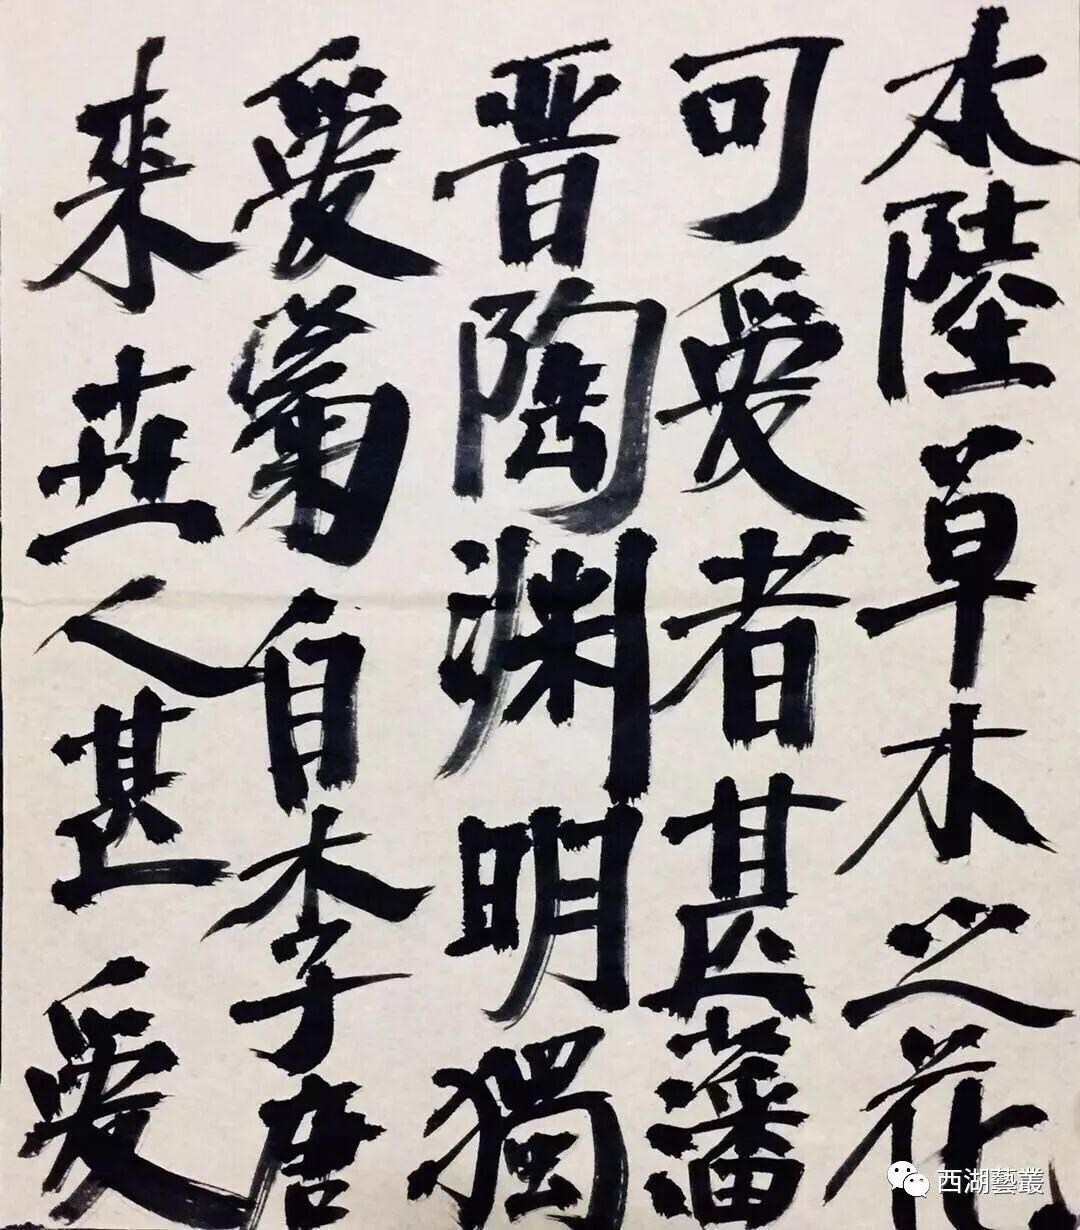 水陸草木之花
可愛者甚藩
晋陶渊明獨
愛菊自李唐
來世人甚愛
西湖藝叢